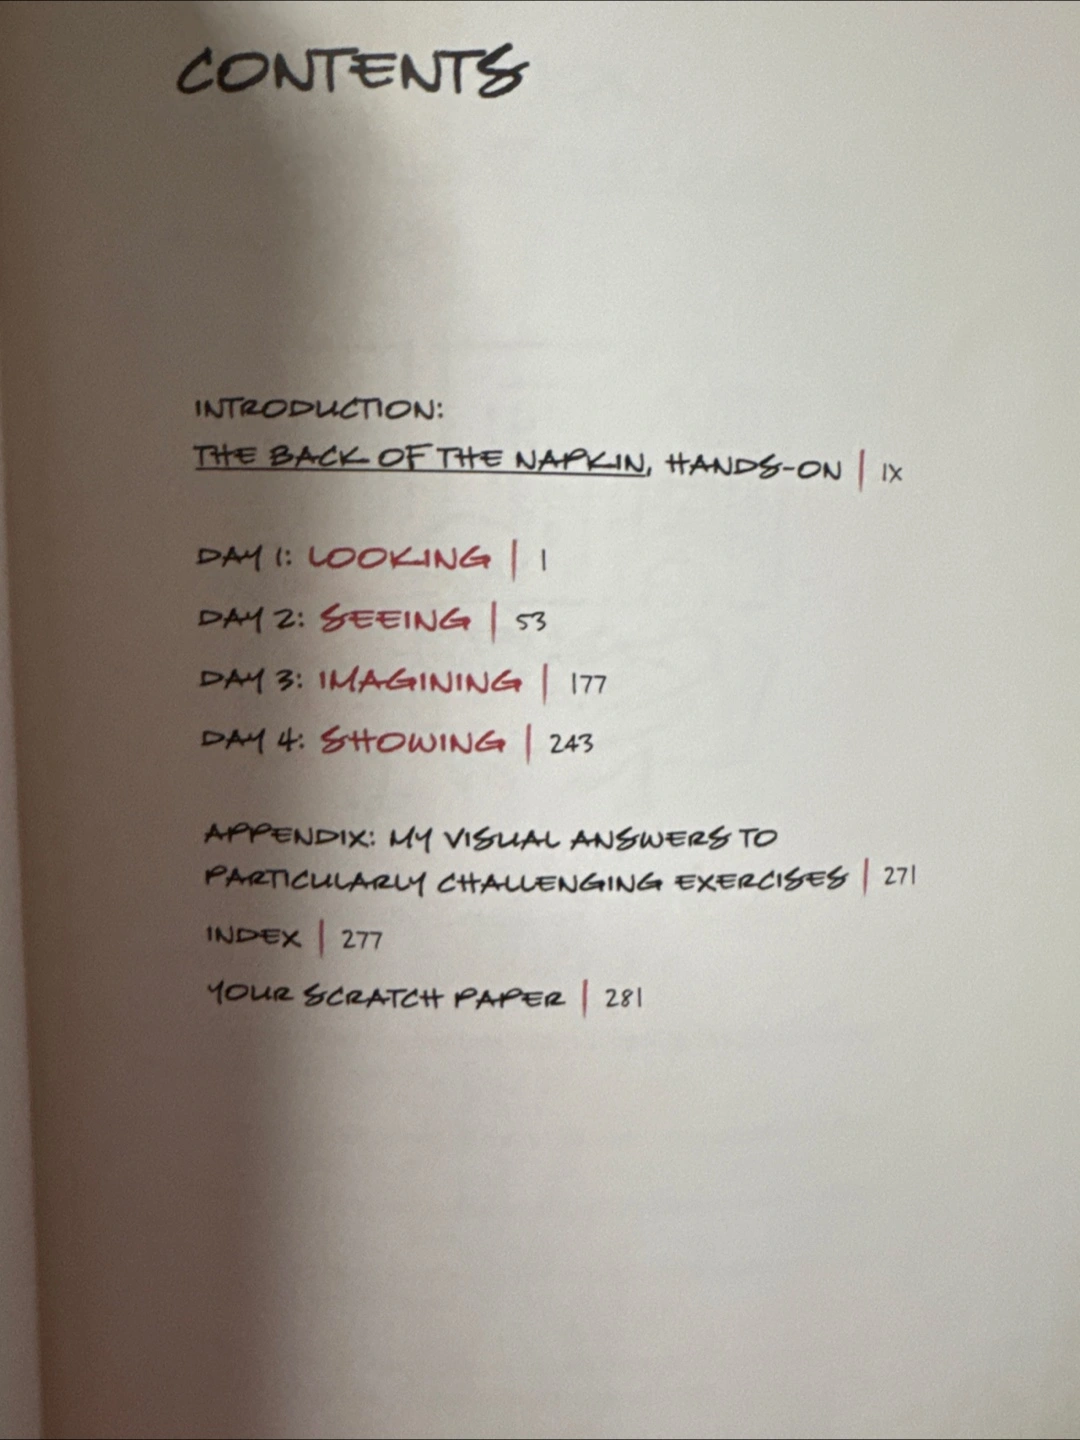 CONTENTS
INTRODUCTION:
THE BACK OF THE NAPKIN, HANDS-ON | IX
DAY 1: LOOKING | 1
DAY 2: SEEING | 53
DAY 3: IMAGINING | 177
DAY 4: SHOWING | 243
APPENDIX: MY VISUAL ANSWERS TO
PARTICULARLY CHALLENGING EXERCISES | 271
INDEX | 277
YOUR SCRATCH PAPER | 281